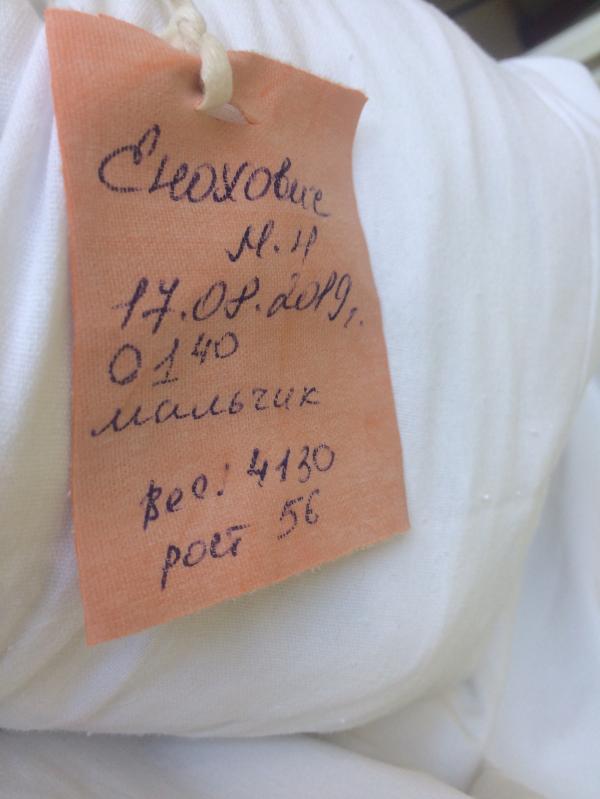 Еноховис
М.Н
17.08.2019г.
01 40
мальчик
вес: 4130
рост 56